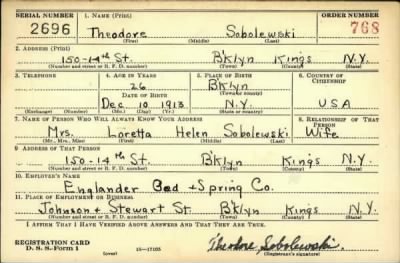 SERIAL NUMBER 1. NAME (Print) ORDER NUMBER
2696 Theodore Sobolewski 768
(First) (Middle) (Last)
2. ADDRESS (Print)
150-14th St. B'klyn Kings N.Y.
(Number and street or R. F. D. number) (Town) (County) (State)
3. TELEPHONE 4. AGE IN YEARS 5. PLACE OF BIRTH 6. COUNTRY OF CITIZENSHIP
26 B'klyn
DATE OF BIRTH (Town or county)
Dec 10 1913 N.Y. USA
(Exchange) (Number) (Mo.) (Day) (Yr.) (State or country)
7. NAME OF PERSON WHO WILL ALWAYS KNOW YOUR ADDRESS 8. RELATIONSHIP OF THAT PERSON
Mrs. Loretta Helen Sobolewski Wife
(Mr., Mrs., Miss) (First) (Middle) (Last)
9. ADDRESS OF THAT PERSON
150-14th St. B'klyn Kings N.Y.
(Number and street or R. F. D. number) (Town) (County) (State)
10. EMPLOYER'S NAME
Englander Bed + Spring Co.
11. PLACE OF EMPLOYMENT OR BUSINESS
Johnson + Stewart St. B'klyn Kings N.Y.
(Number and street or R. F. D. number) (Town) (County) (State)
I AFFIRM THAT I HAVE VERIFIED ABOVE ANSWERS AND THAT THEY ARE TRUE.
REGISTRATION CARD
D. S. S. Form 1 (over) 16-17105 Theodore Sobolewski
(Registrant's signature)